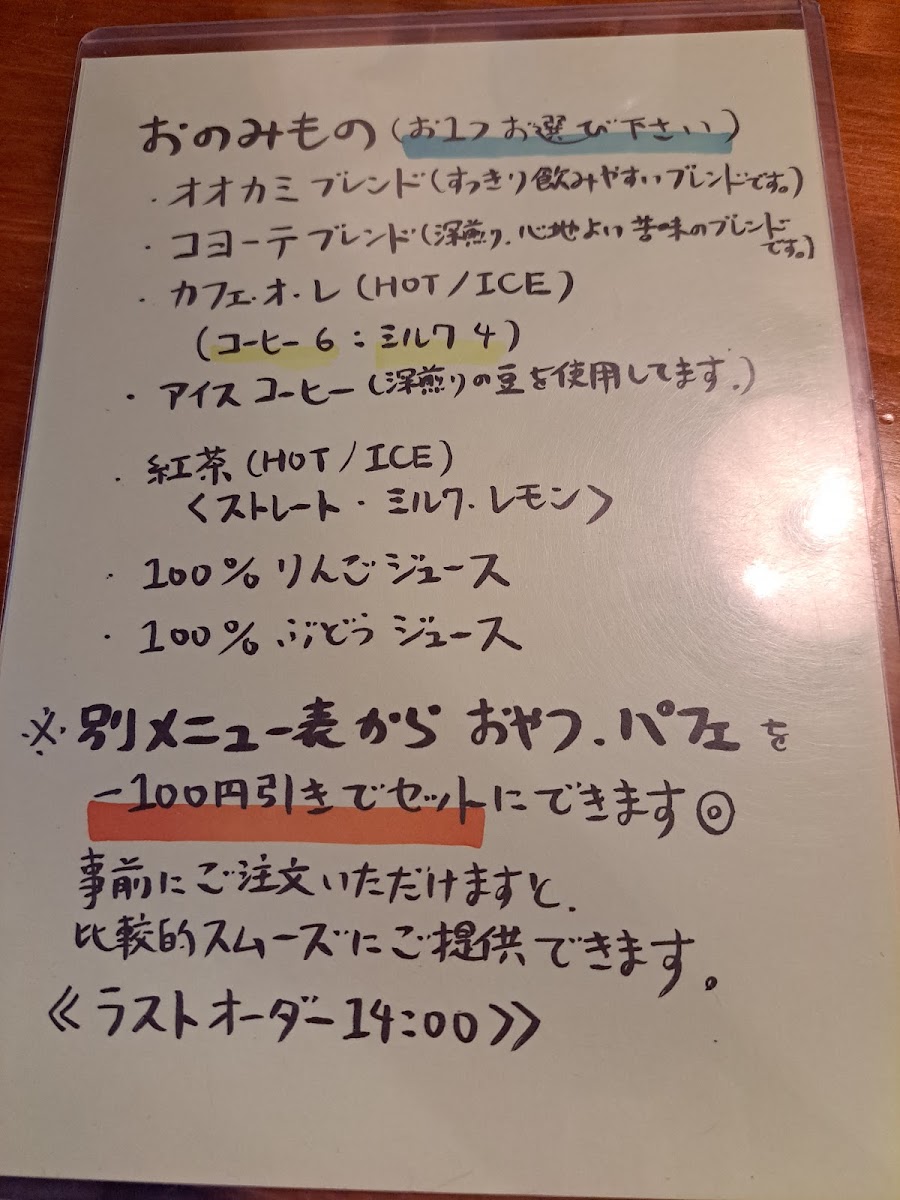 おのみもの(お1つお選び下さい)
・オオカミブレンド(すっきり飲みやすいブレンドです。)
・コヨーテブレンド(深煎り、心地よい苦味のブレンド
です。)
・カフェ・オ・レ(HOT/ICE)
(コーヒー6:ミルク4)
・アイスコーヒー(深煎りの豆を使用してます。)
・紅茶(HOT/ICE)
<ストレート・ミルク・レモン>
・100%りんごジュース
・100%ぶどうジュース
※別メニュー表からおやつ、パフェを
-100円引きでセットにできます◎
事前にご注文いただけますと、
比較的スムーズにご提供できます。
《ラストオーダー14:00》